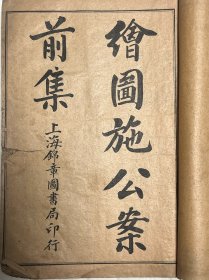 繪圖施公案
前集
上海錦章圖書局印行